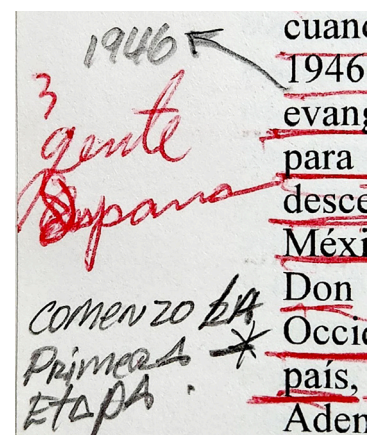 1946
3
gente
Hispana
comenzo LA
Primera
Etapa.
cuand
1946
evang
para
desce
Méxi
Don
Occid
país,
Aden